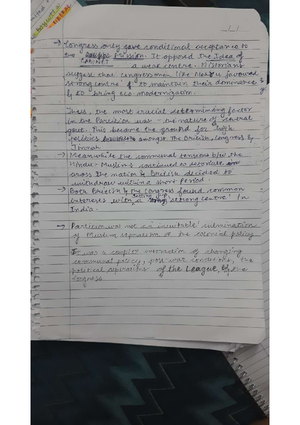 → Congress only gave conditional acceptance to
the Cabinet Mission. It opposed the Idea of
a weak centre. Historians
suggest that Congressmen like Nehru favoured
strong centre to maintain their dominance &
to bring eco modernization.
Thus, the most crucial determining factor
in the Partition was the nature of central
govt. This became the ground for high
politics amongst the British, Congress &
Jinnah.
→ Meanwhile the communal tensions b/w the
Hindu - Muslim continued to
across the nation & British decided to
withdraw within a short period
→ Both British & the Congress found common
interests with a strong centre in
India.
→ Partition was not an inevitable culmination
of Muslim separatism or the colonial policy
It was a complex interaction of changing
communal policy, post war conditions, the
political aspirations of the League, & the
Congress